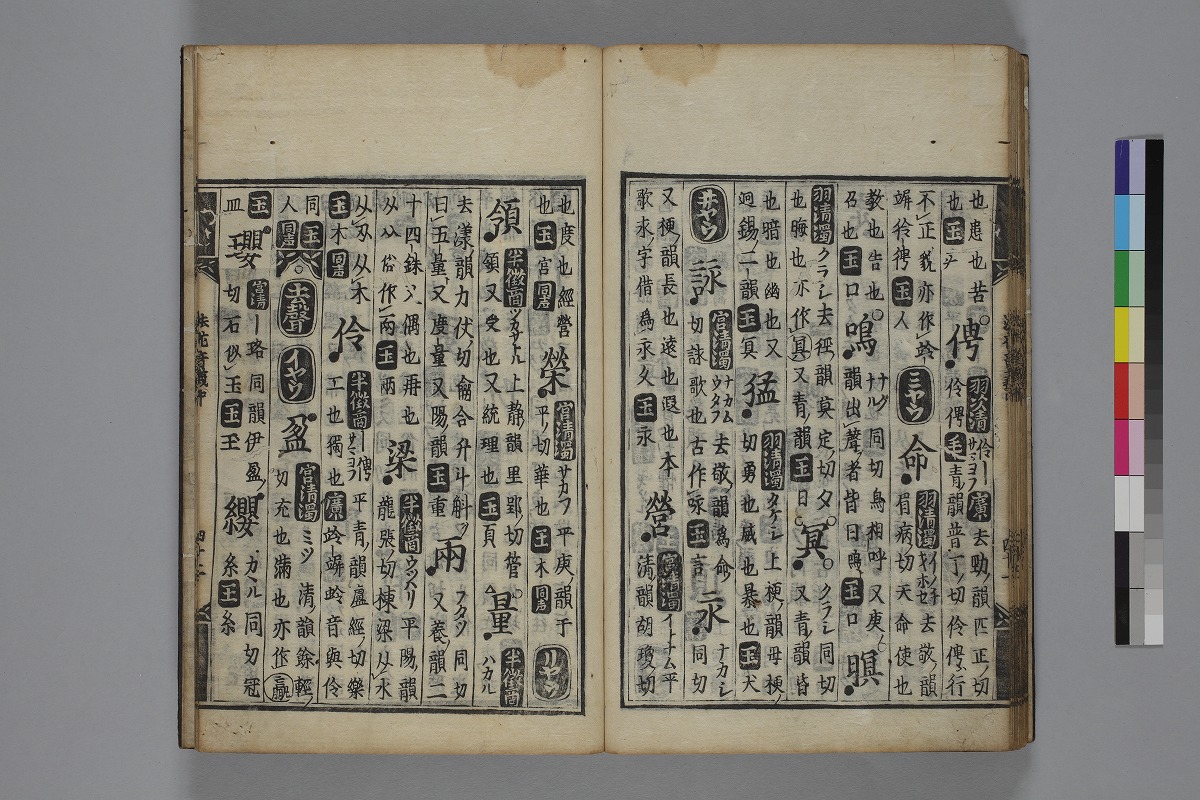 也患也苦俜羽次清伶｜廣去勁韻匹正切
也玉伶俜毛青韻普丁切伶俜行
不正皃亦作竛ミヤウ命羽清濁イノチ去敬韻
竮伶彾玉人眉病切天命使也
教也告也鳴ナル同切鳥相呼又庚
召也玉口韻出聲者皆曰鳴玉口暝
羽清濁クラシ去徑韻莫定切夕
也晦也亦作冥又青韻玉日冥クラシ同切又青韻昏
也暗也幽也又猛羽清濁タケシ上梗韻母梗
迥錫二韻玉冥切勇也威也暴也玉犬
井ヤウ詠宮清濁ナカムウタフ去敬韻為命永ナカシ同切
切詠歌也古作咏玉言
又梗韻長也遠也遐也本營宮清濁イトナム平
歌永字借為永久玉永清韻胡瓊切
也度也經營榮宮清濁サカフ平庚韻于リヤウ
也玉宮同声平切華也玉木同声
領半徴商ツカサトル上静韻里郢切管量半徴商ハカル
領又受也又統理也玉頁
去漾韻力伏切龠合升斗斛兩フタツ同切
曰五量又度量又陽韻玉重又養韻二
十四銖偶也再也梁半徴商ウツハリ平陽韻
从从俗作両玉兩龍張切棟梁从木
从刃从木伶半徴商俜平青韻盧經切樂
玉木同声工也獨也廣竛竮竛音與伶
同玉人同声去聲イヤウ盈宮清濁ミツ清韻餘輕
切充也滿也亦作
玉皿瓔宮清｜珞同韻伊盈纓カカル同切冠
切石似玉玉王糸玉糸